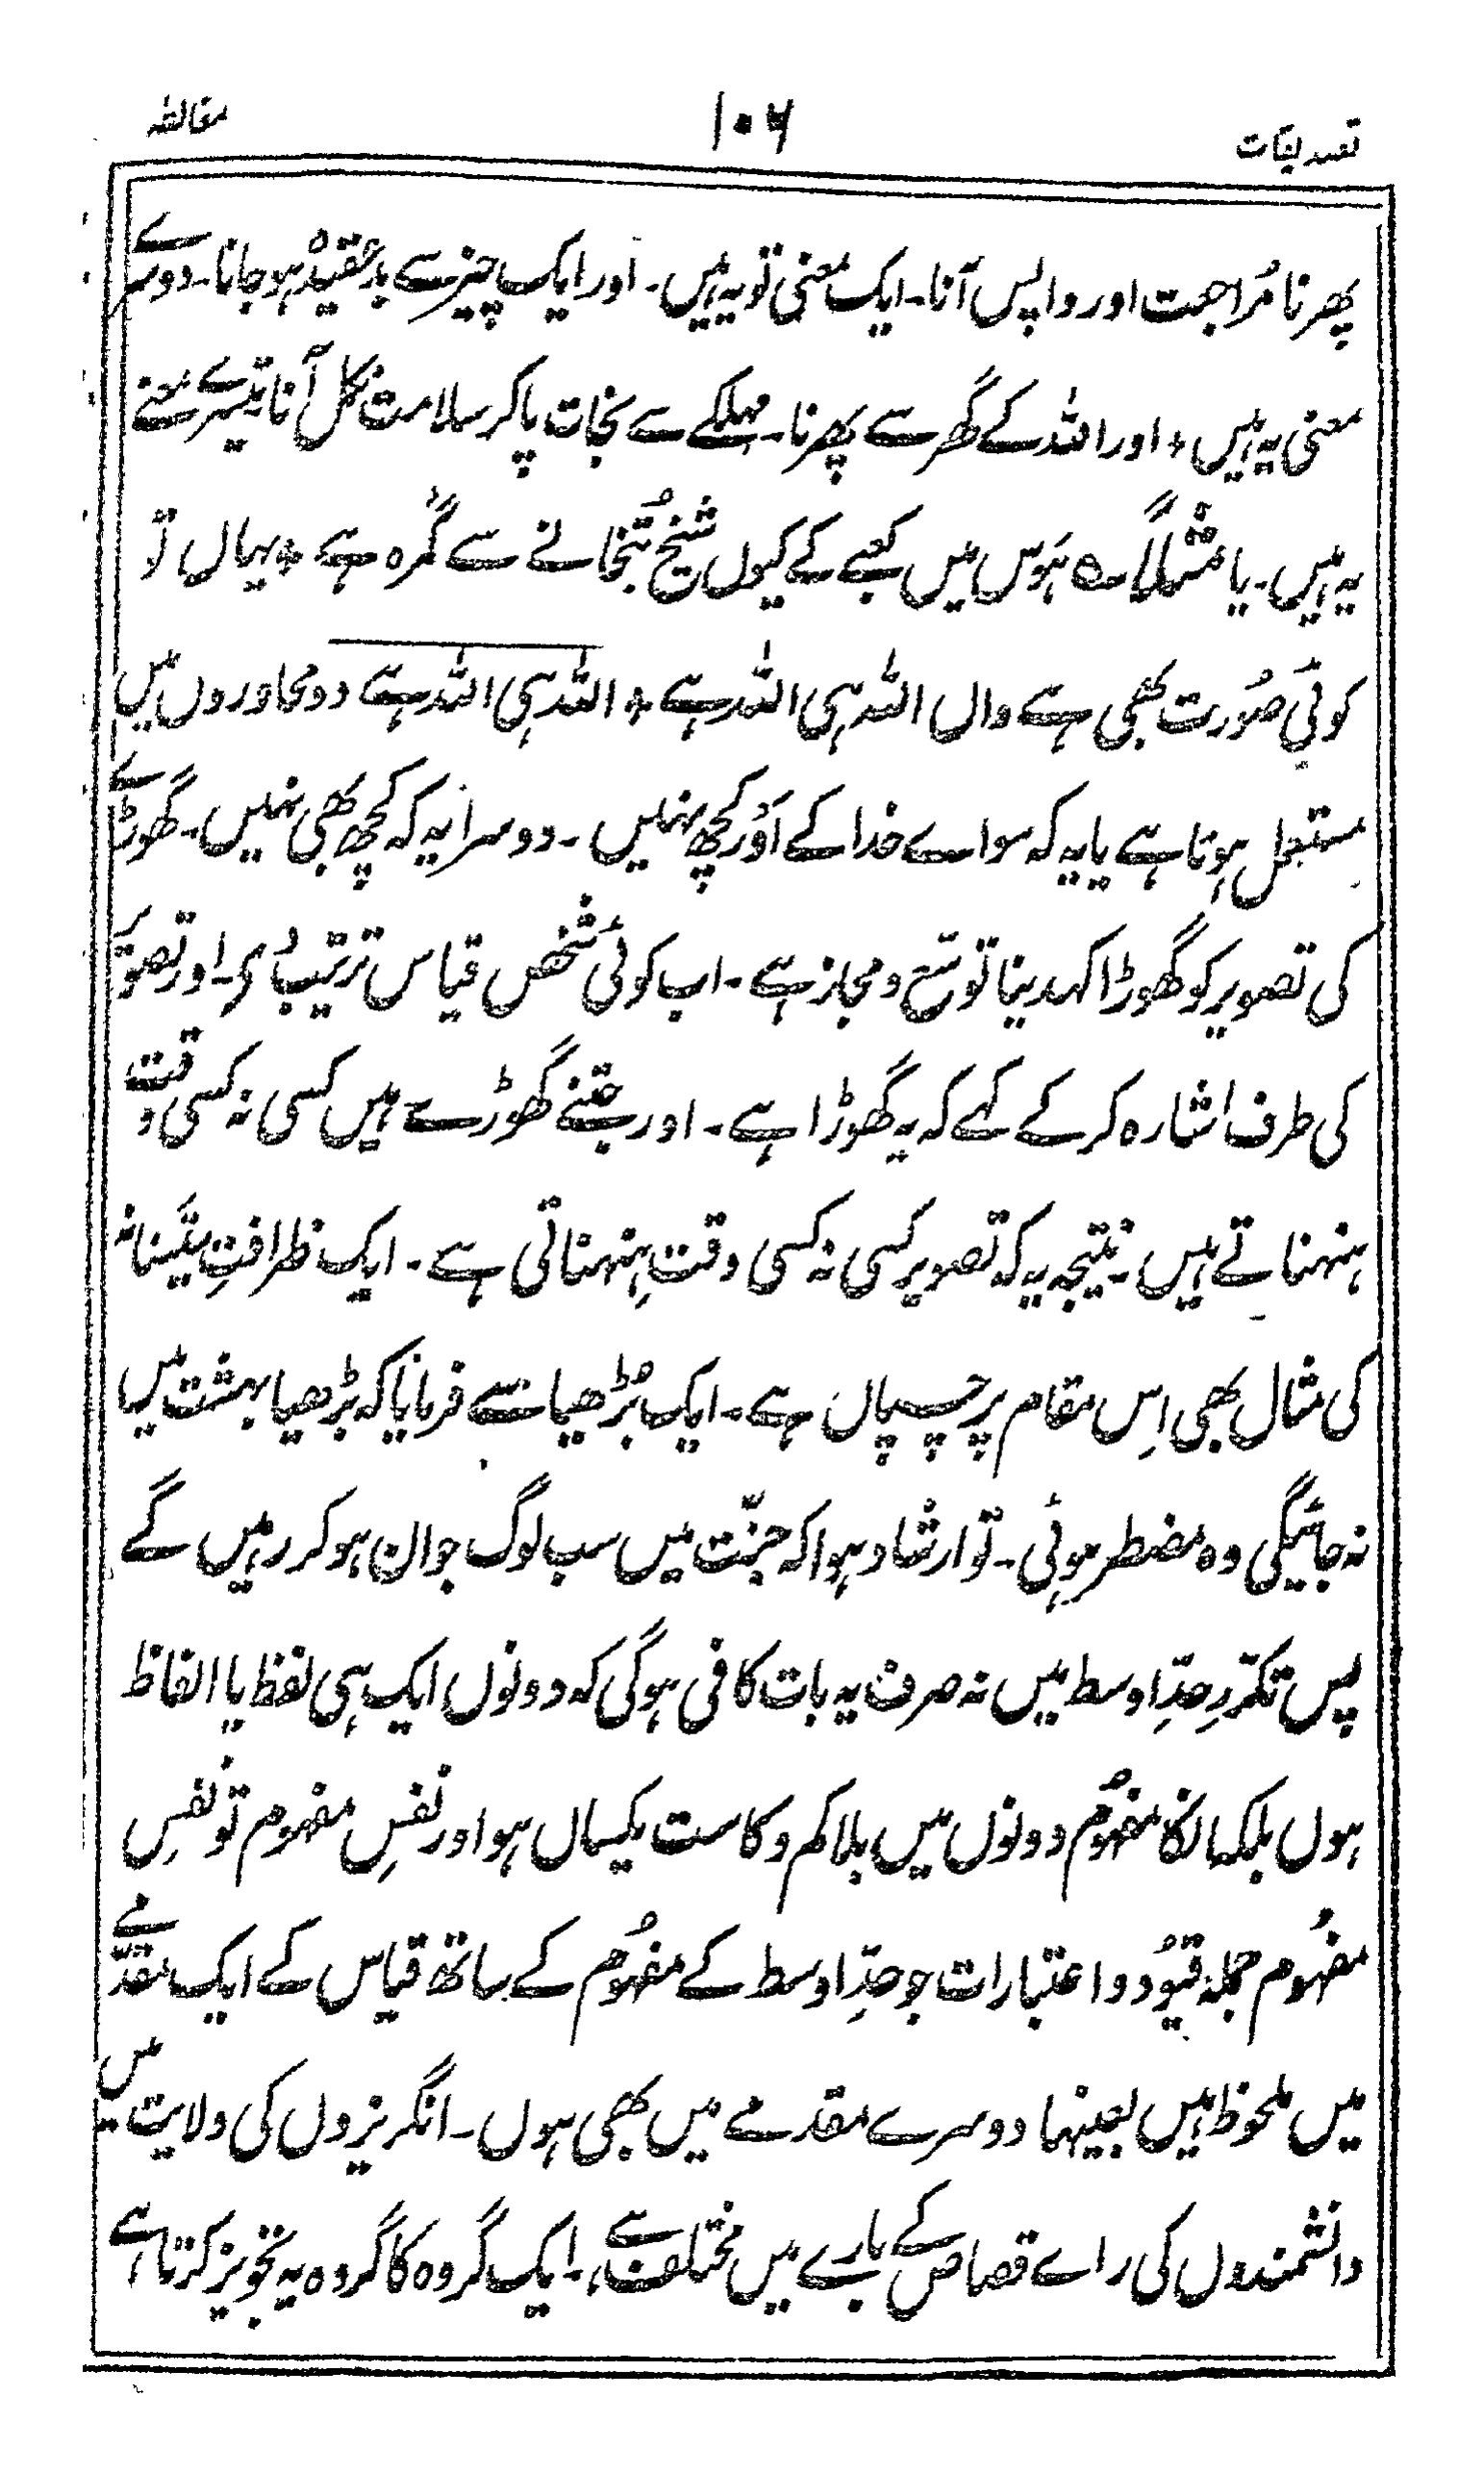 تصدیقات ۱۰۶ مغالطہ
پھرنا مُراجعت اور واپس آنا۔ ایک معنی تو یہ ہیں۔ اور ایک چیز سے بد عقیدہ ہو جانا۔ دوسرے
معنی یہ ہیں + اور اللہ کے گھر سے پھرنا۔ مہلکے سے نجات پا کر سلامت نکل آنا تیسرے معنے
یہ ہیں۔ یا مثلاً ؎ ہَوَس میں کعبے کے کیوں شیخ بُتخانے سے گُمرہ ہے + یہاں تو
کوئی صُورت بھی ہے واں اللہ ہی اللہ ہے + اللہ ہی اللہ ہے دو محاوروں میں
مستعمل ہوتا ہے یا یہ کہ سواے خدا کے اَور کچھ نہیں۔ دوسرا یہ کہ کچھ بھی نہیں۔ گھوڑے
کی تصویر کو گھوڑا کہدینا توسّع و مجاز ہے۔ اب کوئی شخص قیاس ترتیب دے اور تصویر
کی طرف اشارہ کر کے کہے کہ یہ گھوڑا ہے۔ اور جتنے گھوڑے ہیں کسی نہ کسی وقت
ہنہناتے ہیں۔ نتیجہ یہ کہ تصویر کسی نہ کسی وقت ہِنہناتی ہے۔ ایک ظرافتِ متینانہ
کی مثال بھی اِس مقام پر چسپاں ہے۔ ایک بُڑھیا سے فرمایا کہ بڑھیا بہشت میں
نہ جائیگی وہ مضطر ہوئی۔ تو ارشاد ہوا کہ جنّت میں سب لوگ جوان ہو کر رہیں گے
پس تکرّرِ حدِّ اوسط میں نہ صرف یہ بات کافی ہو گی کہ دونوں ایک ہی لفظ یا الفاظ
ہوں بلکہ انکا مفہُوم دونوں میں بلا کم و کاست یکساں ہو اور نفسِ مفہوم تو نفسِ
مفہُوم جملہ قیُود و اعتبارات جو حدِّ اوسط کے مفہُوم کے ساتھ قیاس کے ایک مقدّمے
میں ملحوظ ہیں بعینہا دوسرے مقدمے میں بھی ہوں۔ انگریزوں کی ولایت میں
دانشمندوں کی راے قصاص کے بارے میں مختلف ہے،۔ ایک گروہ کا گروہ یہ تجویز کرتا ہے